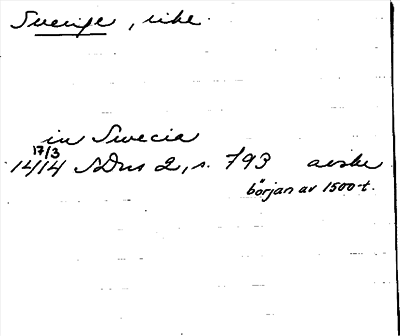 Sverige, rike.
in Swecia
17/3
1414 SDns 2, s. 793 avskr.
början av 1500-t.